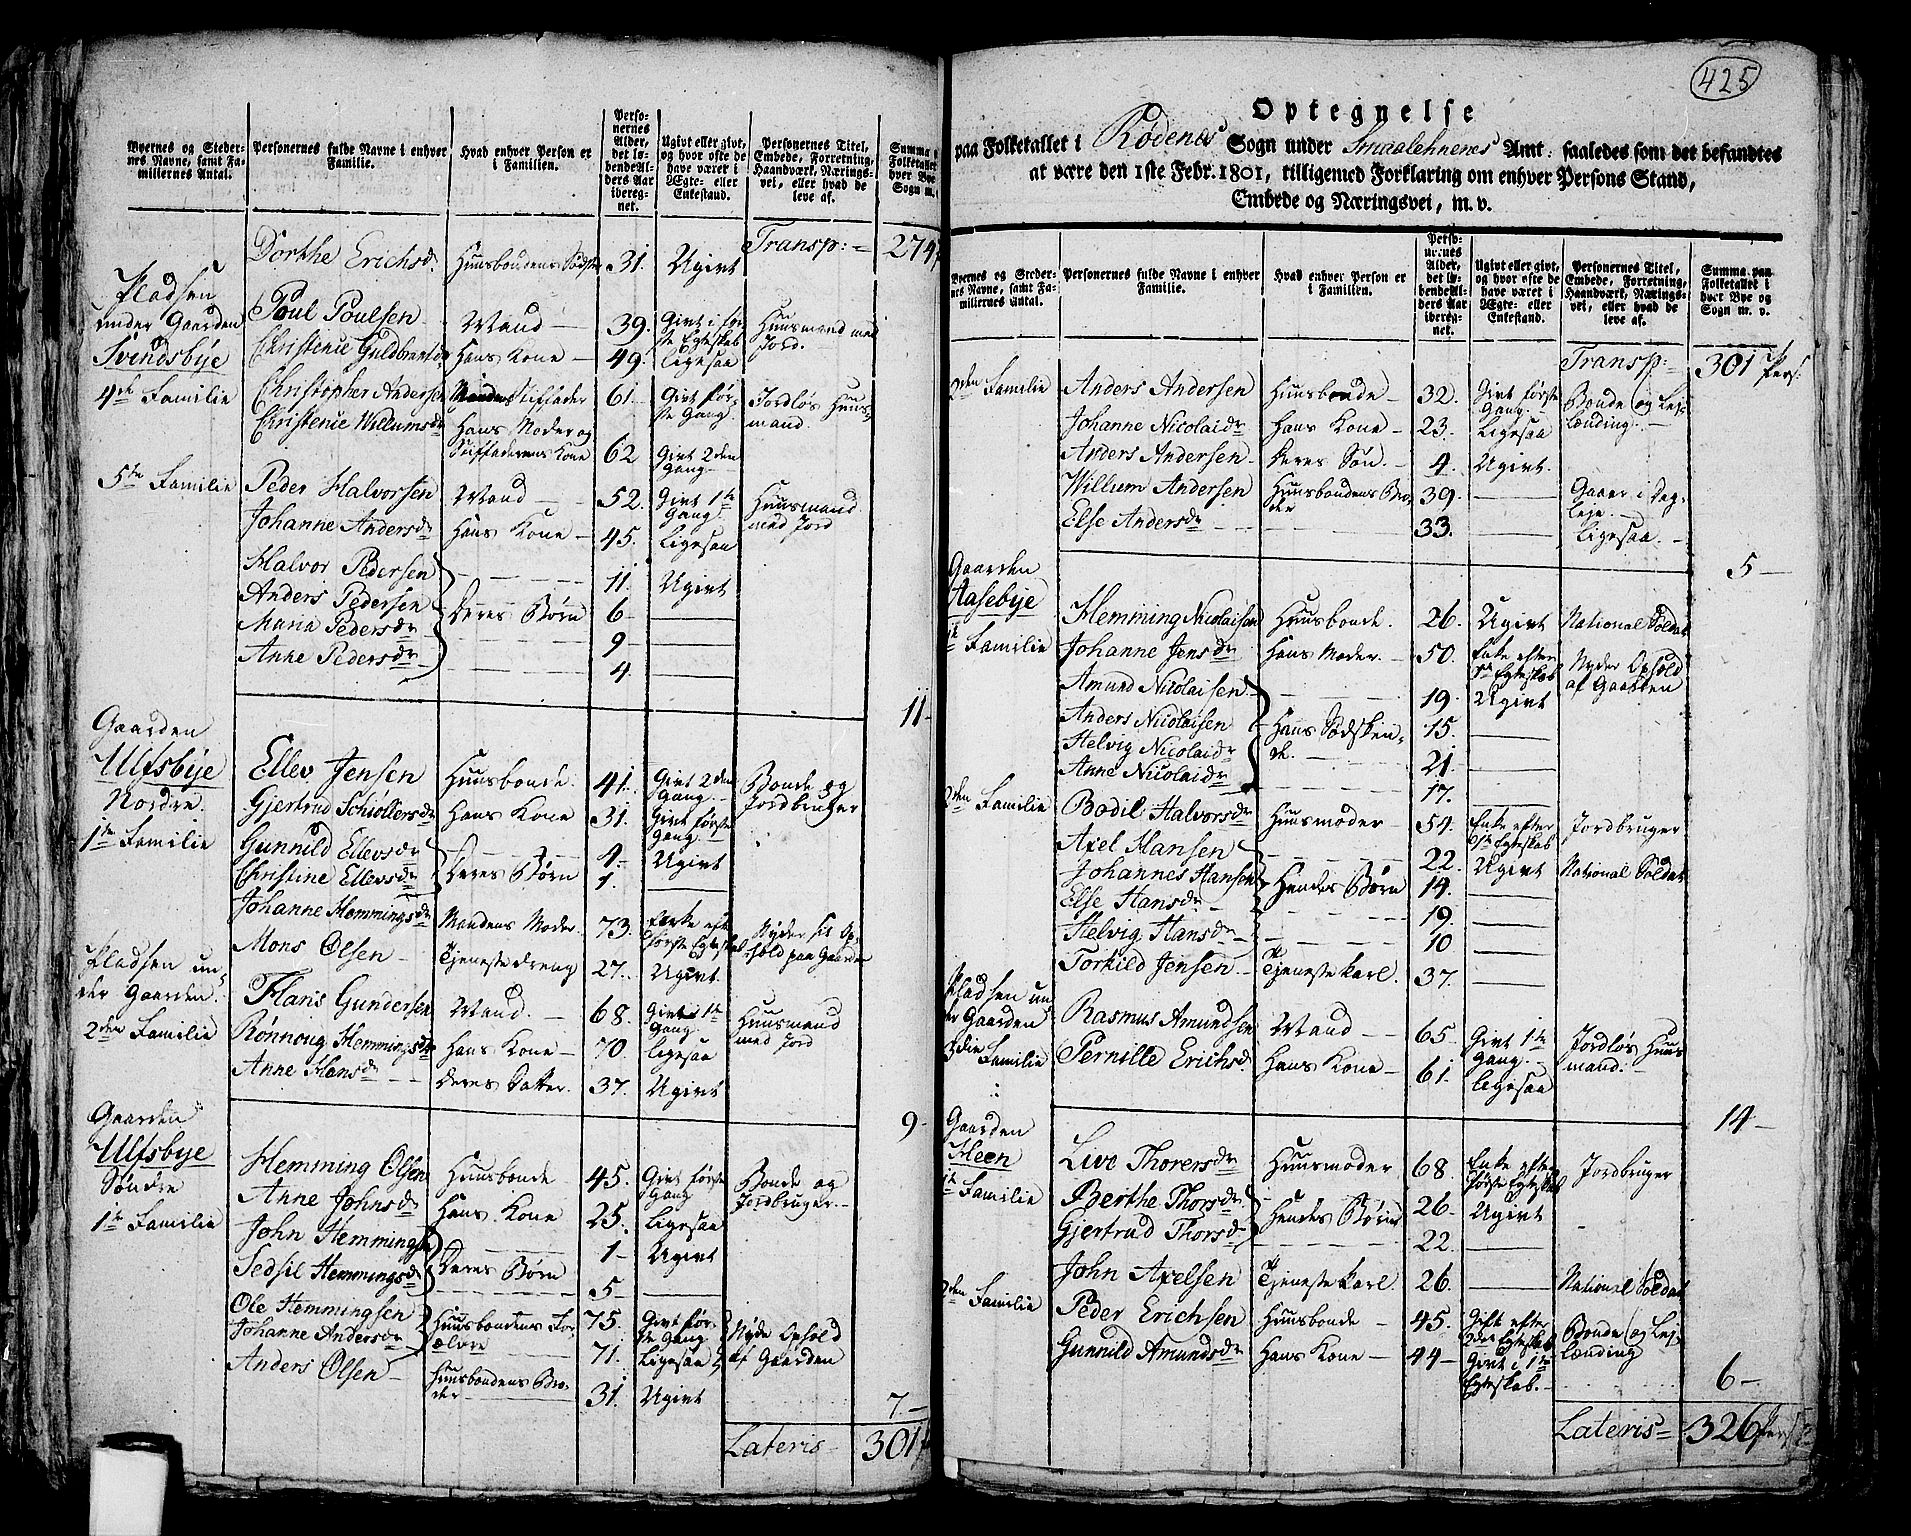 Byernes og Steder-
nes Navne, samt Fa-
miliernes Antal.
Personernes fulde Navne i enhver
Familie.
Hvad enhver Person er
i Familien.
Perso-
nernes
Alder,
det lø-
bende Al-
ders Aar
ibereg-
net.
Ugivt eller givt,
og hvor ofte de
have været i
Ægte- eller
Enkestand.
Personernes Titel,
Embede, Forretning,
Haandværk, Nærings-
vei, eller hvad de
leve af.
Summa
Folketallet
hver Bye
Sogn m.
Transp: = 274
Dorthe Erichsdr Huusbondens Södster 31. Ugivt
Pladsen
under Gaarden
Svindsbye
Poul Poulsen Mand 39. Givt i før-
ste Egteskab Huusmand med
Jord.
Christenie Guldbrandsdr Hans Kone 49. Ligesaa
4de Familie Christopher Andersen Mandens Stiffader 61 Givt før-
ste Gang Jordløs Huus-
mand
Christenie Willumsdr Hans Moder og
Stiffaderens Kone 62 Givt 2den
Gang
5te Familie Peder Halvorsen Mand 52. Givt 1ste
Gang Huusmand
med Jord
Johanne Andersdr Hans Kone 45. Ligesaa
Halvor Pedersen 11. Ugivt
Anders Pedersen Deres Børn 6
Maria Pedersdr 9
Anne Pedersdr 4
11
Gaarden
Ulfsbye
Nordre.
1te Familie
Ellev Jensen Huusbonde 41. Givt 2den
Gang Bonde og
Jordbruger
Gjertrud Schiøllersdr Hans Kone 31. Givt første
Gang
Gunnild Ellevsdr 4 Ugivt
Christine Ellevsdr Deres Børn 1.
Johanne Hemmingsdr Mandens Moder. 73. Enke eft
første Egteskab Nyder sit Op-
hold paa Gaarden
Mons Olsen Tjenestedreng 27. Ugivt
Pladsen un-
der Gaarden.
2den Familie
Hans Gundersen Mand. 68. Givt 1te
Gang Huusmand
med Jord
Rønnoug Hemmingsdr Hans Kone 70. Ligesaa
Anne Hansdr Deres Datter. 37. Ugivt
9
Gaarden
Ulfsbye
Söndre
1te Familie
Hemming Olsen Huusbonde 45. Givt første
Gang Bonde og
Jordbruger
Anne Johnsdr Hans Kone 25. Ligesaa
John Hemmingsen 1 Ugivt
Sedsil Hemmingsdr Deres Børn 5
Ole Hemmingsen Huusbondens For-
ælre 75. Givt før-
ste Gang Nyde Ophold
af Gaarden
Johanne Andersdr 71. Ligesaa
Anders Olsen Huusbondens Bro-
der 31. Ugivt
7
Lateris 301
425
Optegnelse
paa Folketallet i Rödenes Sogn under Smaalehnenes Amt: saaledes som det befandtes
at være den 1ste Febr. 1801, tilligemed Forklaring om enhver Persons Stand,
Embede og Næringsvei, m. v.
Byernes og Steder-
nes Navne, samt Fa-
miliernes Antal.
Personernes fulde Navne i enhver
Familie.
Hvad enhver Person er
i Familien.
Perso-
nernes
Alder,
det lø-
bende Al-
ders Aar
ibereg-
net.
Ugivt eller givt,
og hvor ofte de
have været i
Ægte- eller
Enkestand.
Personernes Titel,
Embede, Forretning,
Haandværk, Nærings-
vei, eller hvad de
leve af.
Summa paa
Folketallet i
hver Bye og
Sogn m. v.
Transp: = 301 Pers:
2den Familie Anders Andersen Huusbonde 32. Givt første
Gang Bonde og Lej-
lænding.
Johanne Nicolaidr Hans Kone 23. Ligesaa
Anders Andersen Deres Søn. 4. Ugivt.
Willum Andersen Huusbondens Bro-
der 39. Gaaer i Dag-
leje.
Else Andersdr 33. Ligesaa.
5
Gaarden
Aasebye
1te Familie
Hemming Nicolaisen Huusbonde. 26. Ugivt National Soldat
Johanne Jensdr Hans Moder. 50. Enke efter
1te Egteskab Nyder Ophold
af Gaarden
Amund Nicolaisen 19. Ugivt
Anders Nicolaisen Hans Södsken-
de. 15.
Helvig Nicolaidr 21
Anne Nicolaidr 17.
2den Familie Bodil Halvorsdr Huusmoder 54. Enke efter
1te Egteskab Jordbruger
Axel Hansen 22. Ugivt National Soldat
Johannes Hansen Hendes Børn 14.
Else Hansdr 19.
Helvig Hansdr 10
Torkild Jensen Tjenestekarl. 37.
Pladsen un
der Gaarden
3die Familie
Rasmus Amundsen Mand 65. Givt 1te
Gang. Jordløs Huus
mand.
Pernille Erichsdr Hans Kone 61. Ligesaa
14
Gaarden
Heen
1te Familie
Live Thorersdr Huusmoder 68. Enke efter
første Egteskab Jordbruger
Berthe Thorsdr Hendes Børn 26. Ugivt
Gjertrud Thorsdr 22.
John Axelsen Tjenestekarl. 26. National Soldat
2den Familie Peder Erichsen Huusbonde 45. Gift efter
2det Egteskab Bonde og Lej-
lænding
Gunnild Amundsdr Hans Kone 44 Givt i 1te
Egteskab.
6
Lateris = 326 Pers